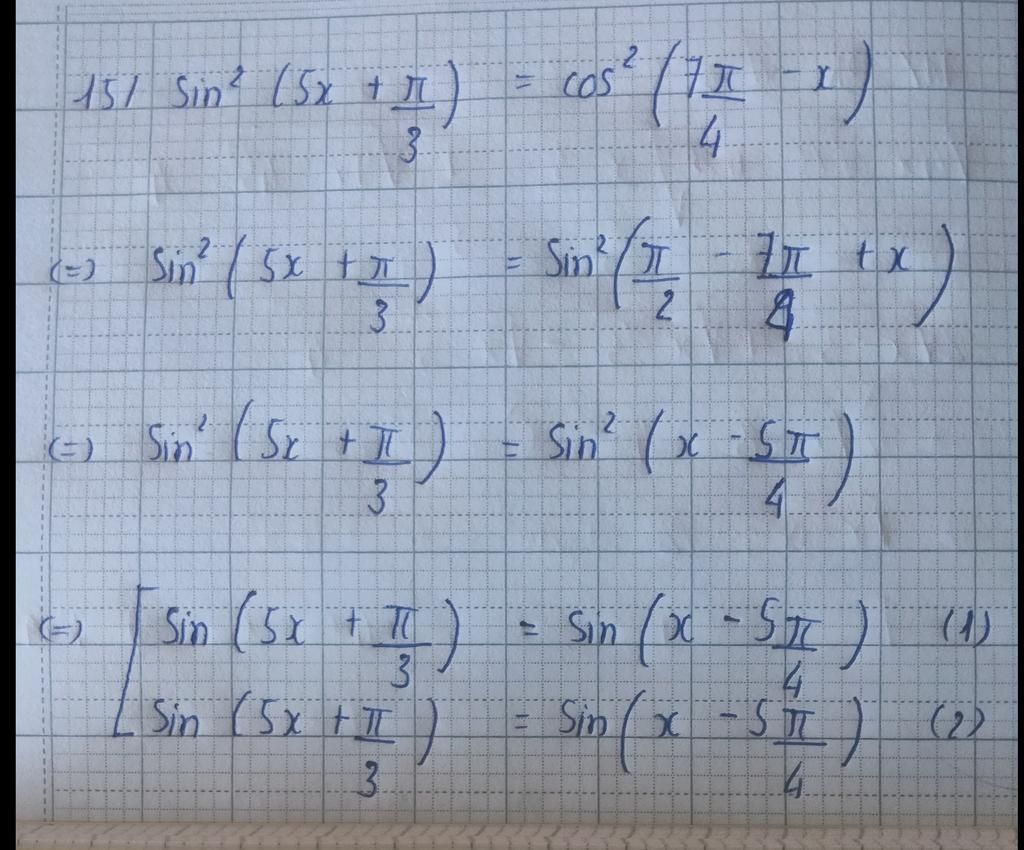 15/ Sin² (5x + π/3) = cos² (7π/4 - x)
(=) Sin² (5x + π/3) = Sin² (π/2 - 7π/4 + x)
(=) Sin² (5x + π/3) = Sin² (x - 5π/4)
(=) [ Sin (5x + π/3) = Sin (x - 5π/4) (1)
Sin (5x + π/3) = Sin (x - 5π/4) (2)